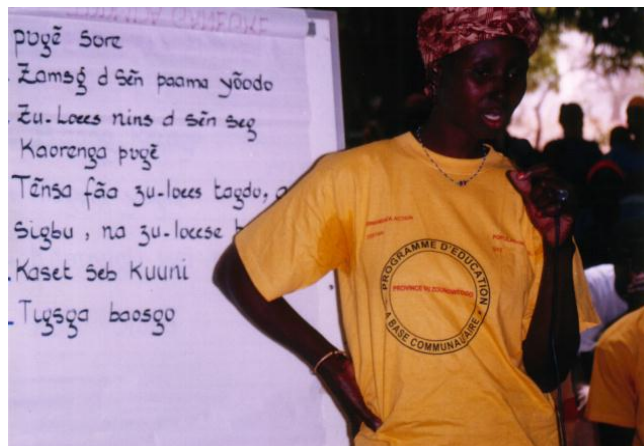 pʋgẽ sore
Zãmsg d sẽn paama yõodo
Zu-loees nins d sẽn seg
Kaorenga pʋgẽ
Tẽnsa fãa zu-loees tagdo,
Sigbu, na zu-loeese
Kaset seb kuuni
Tʋgsga baosgo
PROGRAMME D'EDUCATION
PROVINCE DU ZOUNDWEOGO
A BASE COMMUNAUTAIRE